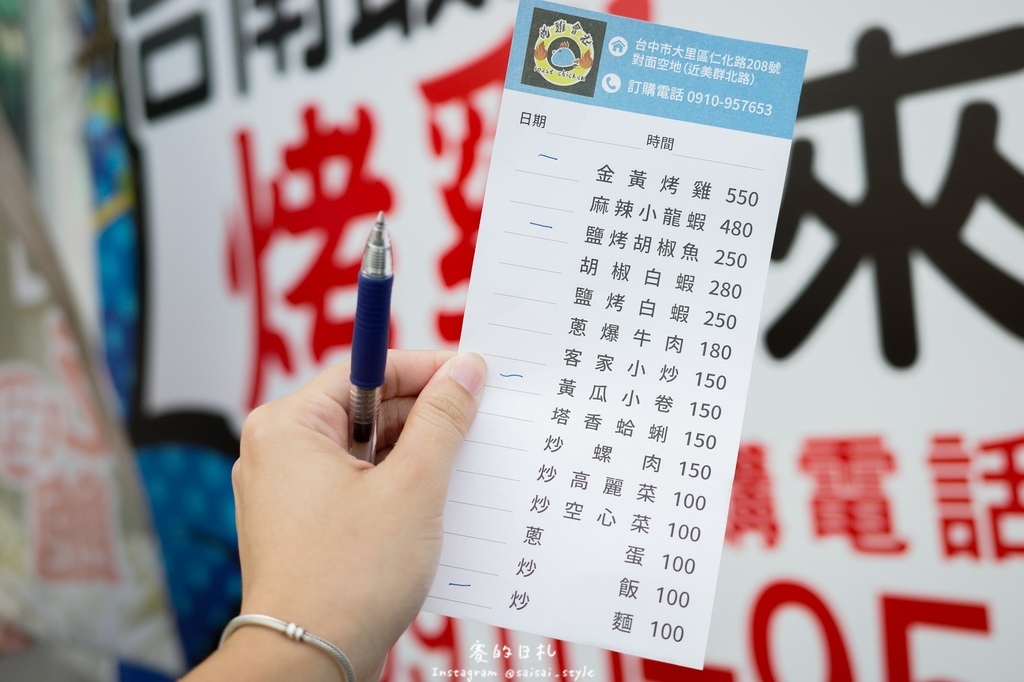 台南
烤雞
來
購電話
烤雞會社
roast chicken
台中市大里區仁化路208號
對面空地(近美群北路)
訂購電話 0910-957653
日期 時間
一 金黃烤雞 550
麻辣小龍蝦 480
一 鹽烤胡椒魚 250
胡椒白蝦 280
鹽烤白蝦 250
蔥爆牛肉 180
客家小炒 150
一 黃瓜小卷 150
塔香蛤蜊 150
炒螺肉 150
炒高麗菜 100
炒空心菜 100
蔥蛋 100
炒飯 100
一 炒麵 100
賽的日札
Instagram @saisai_style